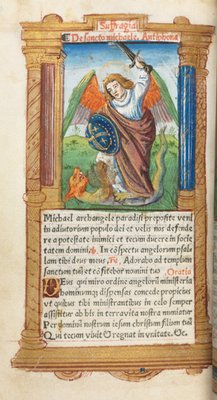 Suffragia
De sancto michaele. Antiphona
Michael archangele paradisi preposite veni
in adiutorium populi dei et velis nos defende
re a potestate inimici et tecum ducere in socie
tatem domini. In cōspectu angelorum psal
lam tibi deus meus Adorabo ad templum
sanctum tuū et cōfitebor nomini tuo Oratio
DEus qui miro ordine angelorū ministeria
hominumq; dispensas concede propicius
ut quibus tibi ministrantibus in celo semper
assistitur ab his in terra vita nostra muniatur
Per dominū nostrum iesum christum filium tuū
Qui tecum vivit et regnat in unitate. &c.